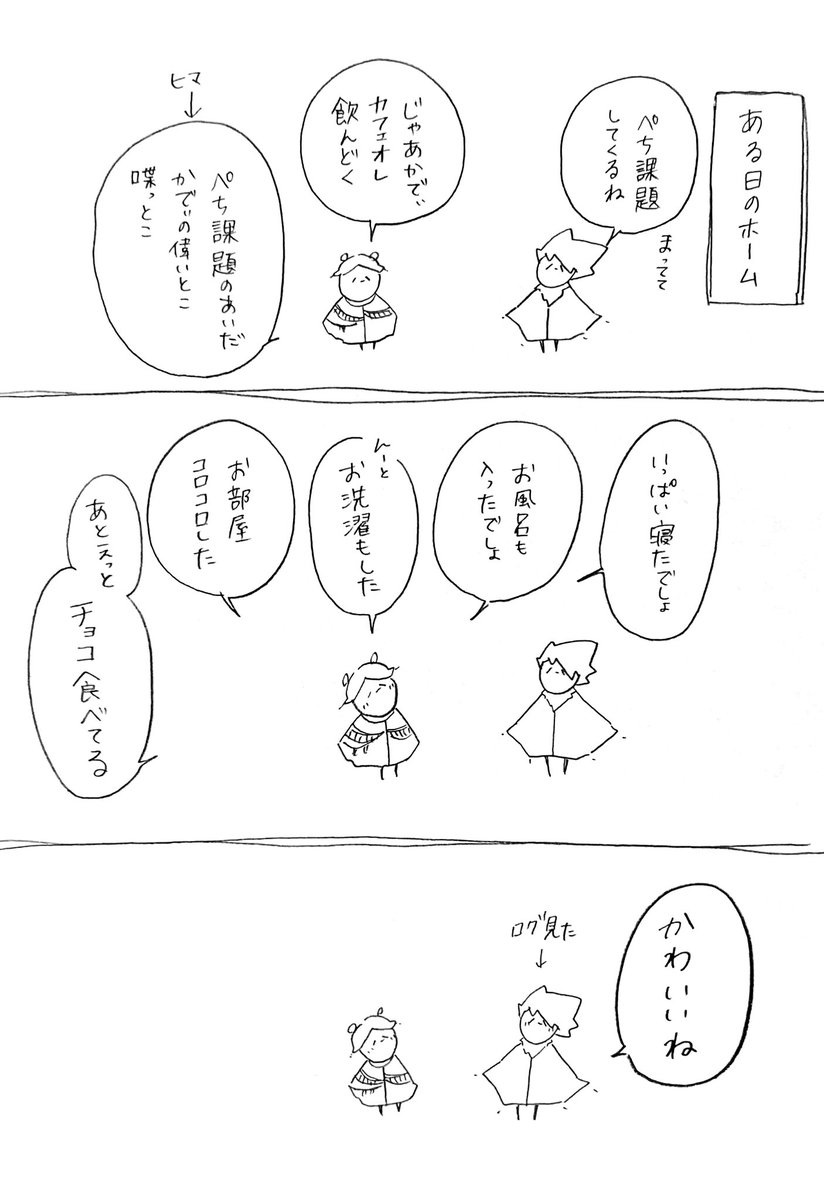 ある日のホーム
ぺち課題
してくるね
まってて
じゃあかでぃ
カフェオレ
飲んどく
ヒマ
ぺち課題のあいだ
かでぃの偉いとこ
喋っとこ
いっぱい寝たでしょ
お風呂も
入ったでしょ
んーと
お洗濯もした
お部屋
コロコロした
あとえっと
チョコ食べてる
かわいいね
ログ見た